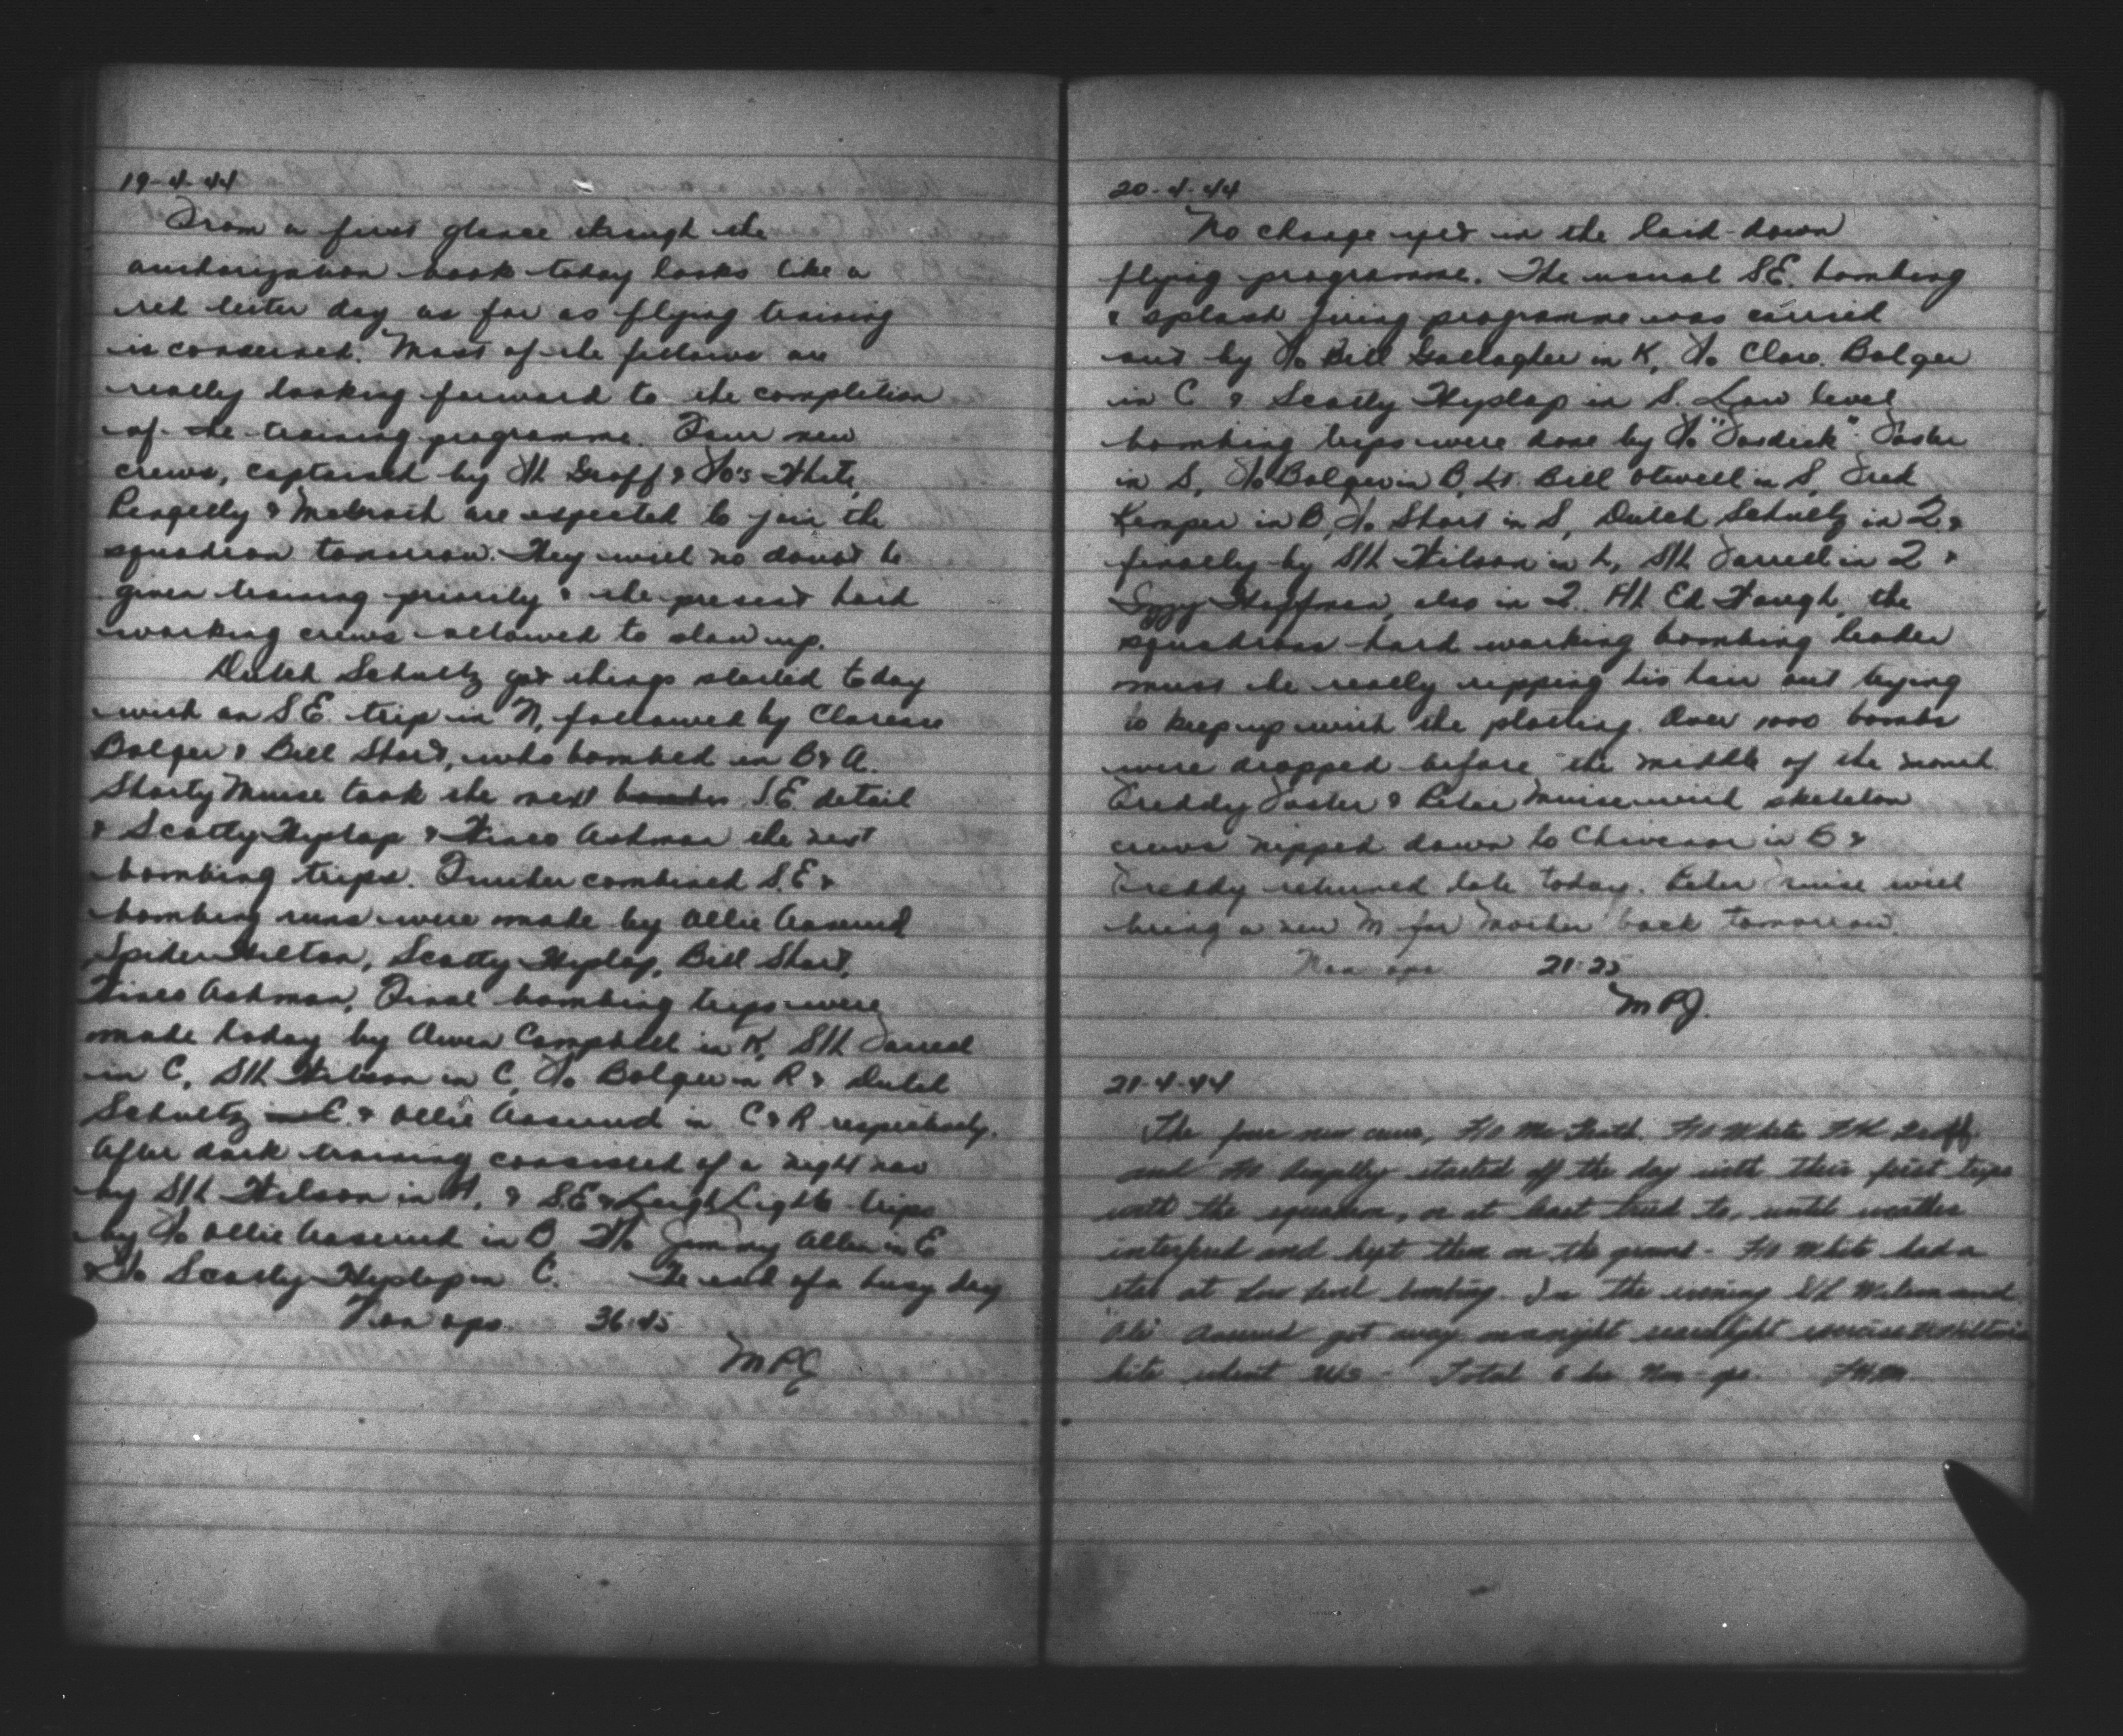 19-4-44
From a first glance through the
authorization book today looks like a
red letter day as far as flying training
is concerned. Most of the fellows are
really looking forward to the completion
of the training programme. Four new
crews, captained by F/L Graff & F/O's White,
Pengelly & McGrath are expected to join the
squadron tomorrow. They will no doubt be
given training priority & the present hard
working crews allowed to slow up.
Dutch Schultz got things started today
with an S.E. trip in N, followed by Clarence
Bolger & Bill Short, who bombed in B & A.
Shorty Muise took the next S.E. detail
& Scotty Hyslop & Ashman the next
bombing trips. Further combined S.E &
bombing runs were made by Ollie Aaserud
Spider Hilton, Scotty Hyslop, Bill Short,
Ashman. Final bombing trips were
made today by Owen Campbell in K, S/L Farrell
in C, S/L Wilson in C, F/O Bolger in R & Dutch
Schultz & Ollie Aaserud in C & R respectively.
After dark training consisted of a night nav
by S/L Wilson in H, & S.E & Leigh Light trips
by F/O Ollie Aaserud in B, Jimmy Allen in E
& F/O Scotty Hyslop in C. The end of a busy day
Non ops. 36:45
MPG
20-4-44
No change yet in the laid-down
flying programme. The usual S.E. bombing
& splash firing programme was carried
out by F/O Bill Gallagher in K, F/O Clare. Bolger
in C & Scotty Hyslop in S. Low level
bombing trips were done by F/O "Fosdick" Foster
in S, F/O Bolger in B, Lt. Bill Otwell in S, Fred
Kemper in B, F/O Short in S, Dutch Schultz in 2 &
finally by S/L Wilson in L, S/L Farrell in 2 &
Iggy Hoffman, also in 2. F/L Ed Waugh, the
squadrons hard working bombing leader
must be really ripping his hair out trying
to keep up with the plotting. Over 1000 bombs
were dropped before the middle of the month.
Freddy Foster & Peter Muise with skeleton
crews nipped down to Chivenor in B &
Freddy returned late today. Peter Muise will
bring a new M for Mother back tomorrow.
Non ops 21:25
MPG.
21-4-44
The four new crews, F/O McGrath. F/O White F/L Graff
and F/O Pengelly started off the day with their first trips
with the squadron, or at least tried to, until weather
interfered and kept them on the ground - F/O White had a
at low level bombing. In the evening S/L Wilson and
Aaserud got away on night searchlight exercise
kite - Total 6 hrs Non-ops.